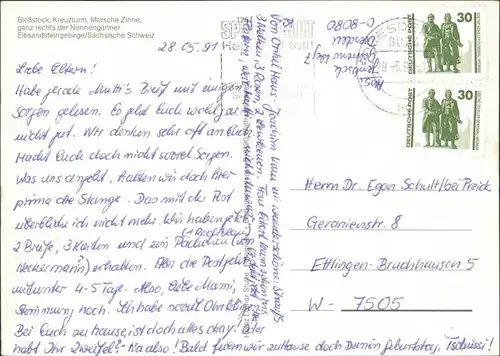 Bloßstock, Kreuzturm, Morsche Zinne,
ganz rechts der Nonnengärtner
Elbsandsteingebirge/Sächsische Schweiz
28.05.91
Liebe Eltern!
Habe gerade Mutti's Brief mit einigen
Sorgen gelesen. Es geht Euch wohl gar
nicht gut. Wir denken sehr oft an Euch.
Macht Euch doch nicht soviel Sorgen.
Was uns angeht, halten wir doch hier
prima die Stange. Das mit der Post
überblicke ich nicht mehr. Wir haben jetzt
2 Briefe, 3 Karten und ein Päckchen (von
Neckermann?) erhalten. Aber die Post geht
mitunter 4-5 Tage. Also, liebe Mami,
Stimmung hoch. Ich habe soviel
Bei Euch zu Hause, ist doch alles okay. Oder
habt Ihr Zweifel? Na also! Bald feiern wir zuhause doch Deinen Geburtstag. Tschüssi!
Von Onkel Hans-Joachim kam ein wunderschöner Strauß
3 Nelken, 3 Rosen, 2 Frau Eckert
Dresden
O-8080
DEUTSCHE POST 30
DEUTSCHE POST 30
Herrn Dr. Egon Schult/bei Preick
Geranienstr. 8
Ettlingen-Bruchhausen 5
W- 7505